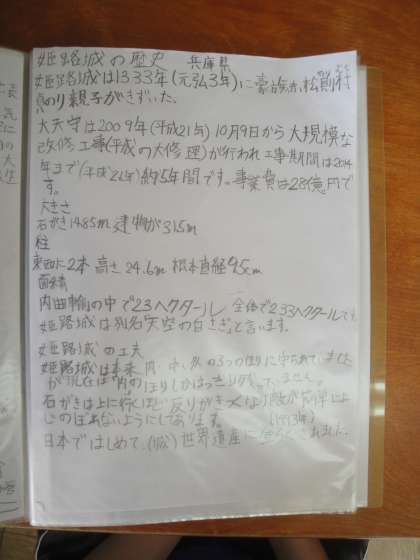 姫路城の歴史 兵庫県
姫路城は1333年(元弘3年)に豪族赤松則村
貞のり親子がきずいた。
大天守は2009年(平成21年)10月9日から大規模な
改修工事(平成の大修理)が行われ工事期間は2014
年まで(平成26年)約5年間です。事業費は28億円で
す。
大きさ
石がき14.85m 建物が31.5m
柱
東西に2本 高さ24.6m 根本直経95cm
面積
内曲輪の中で23ヘクタール 全体で233ヘクタールです
姫路城は別名天空の白さぎと言います。
姫路城の工夫
姫路城は本来内、中、外の3つのほりに守られていました
が現在は内のほりしかはっきり
石がきは上に行くほど反りがき
のぼれないようにしてあります。
日本ではじめて、 世界遺産に されました。